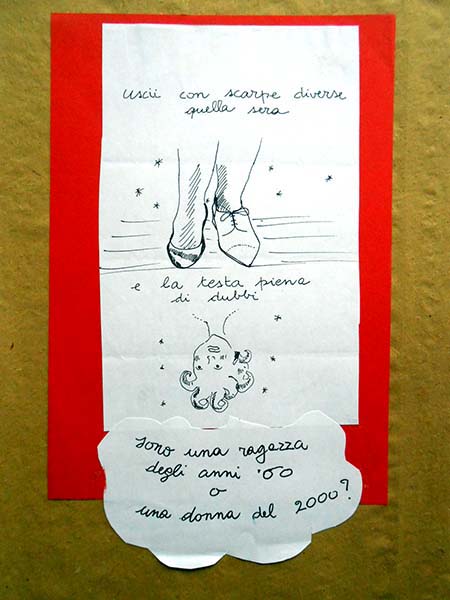 uscii con scarpe diverse
quella sera
e la testa piena
di dubbi
Sono una ragazza
degli anni '60
o
una donna del 2000?